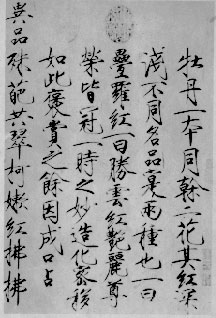 牡丹一本同榦二花其紅深
淺不同名品實兩種也一曰
疊羅紅一曰勝雲紅艷麗尊
榮皆冠一時之妙造化密移
如此褒賞之餘因成口占
異品殊葩共翠柯嫩紅拂拂